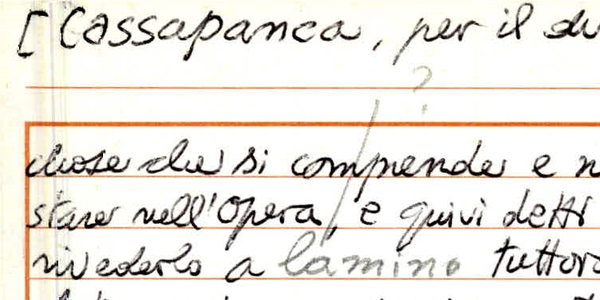 [Cassapanca, per il du
?
chose che si comprende e n
stare nell'Opera, e quivi detti
rivederlo a lamino tuttora